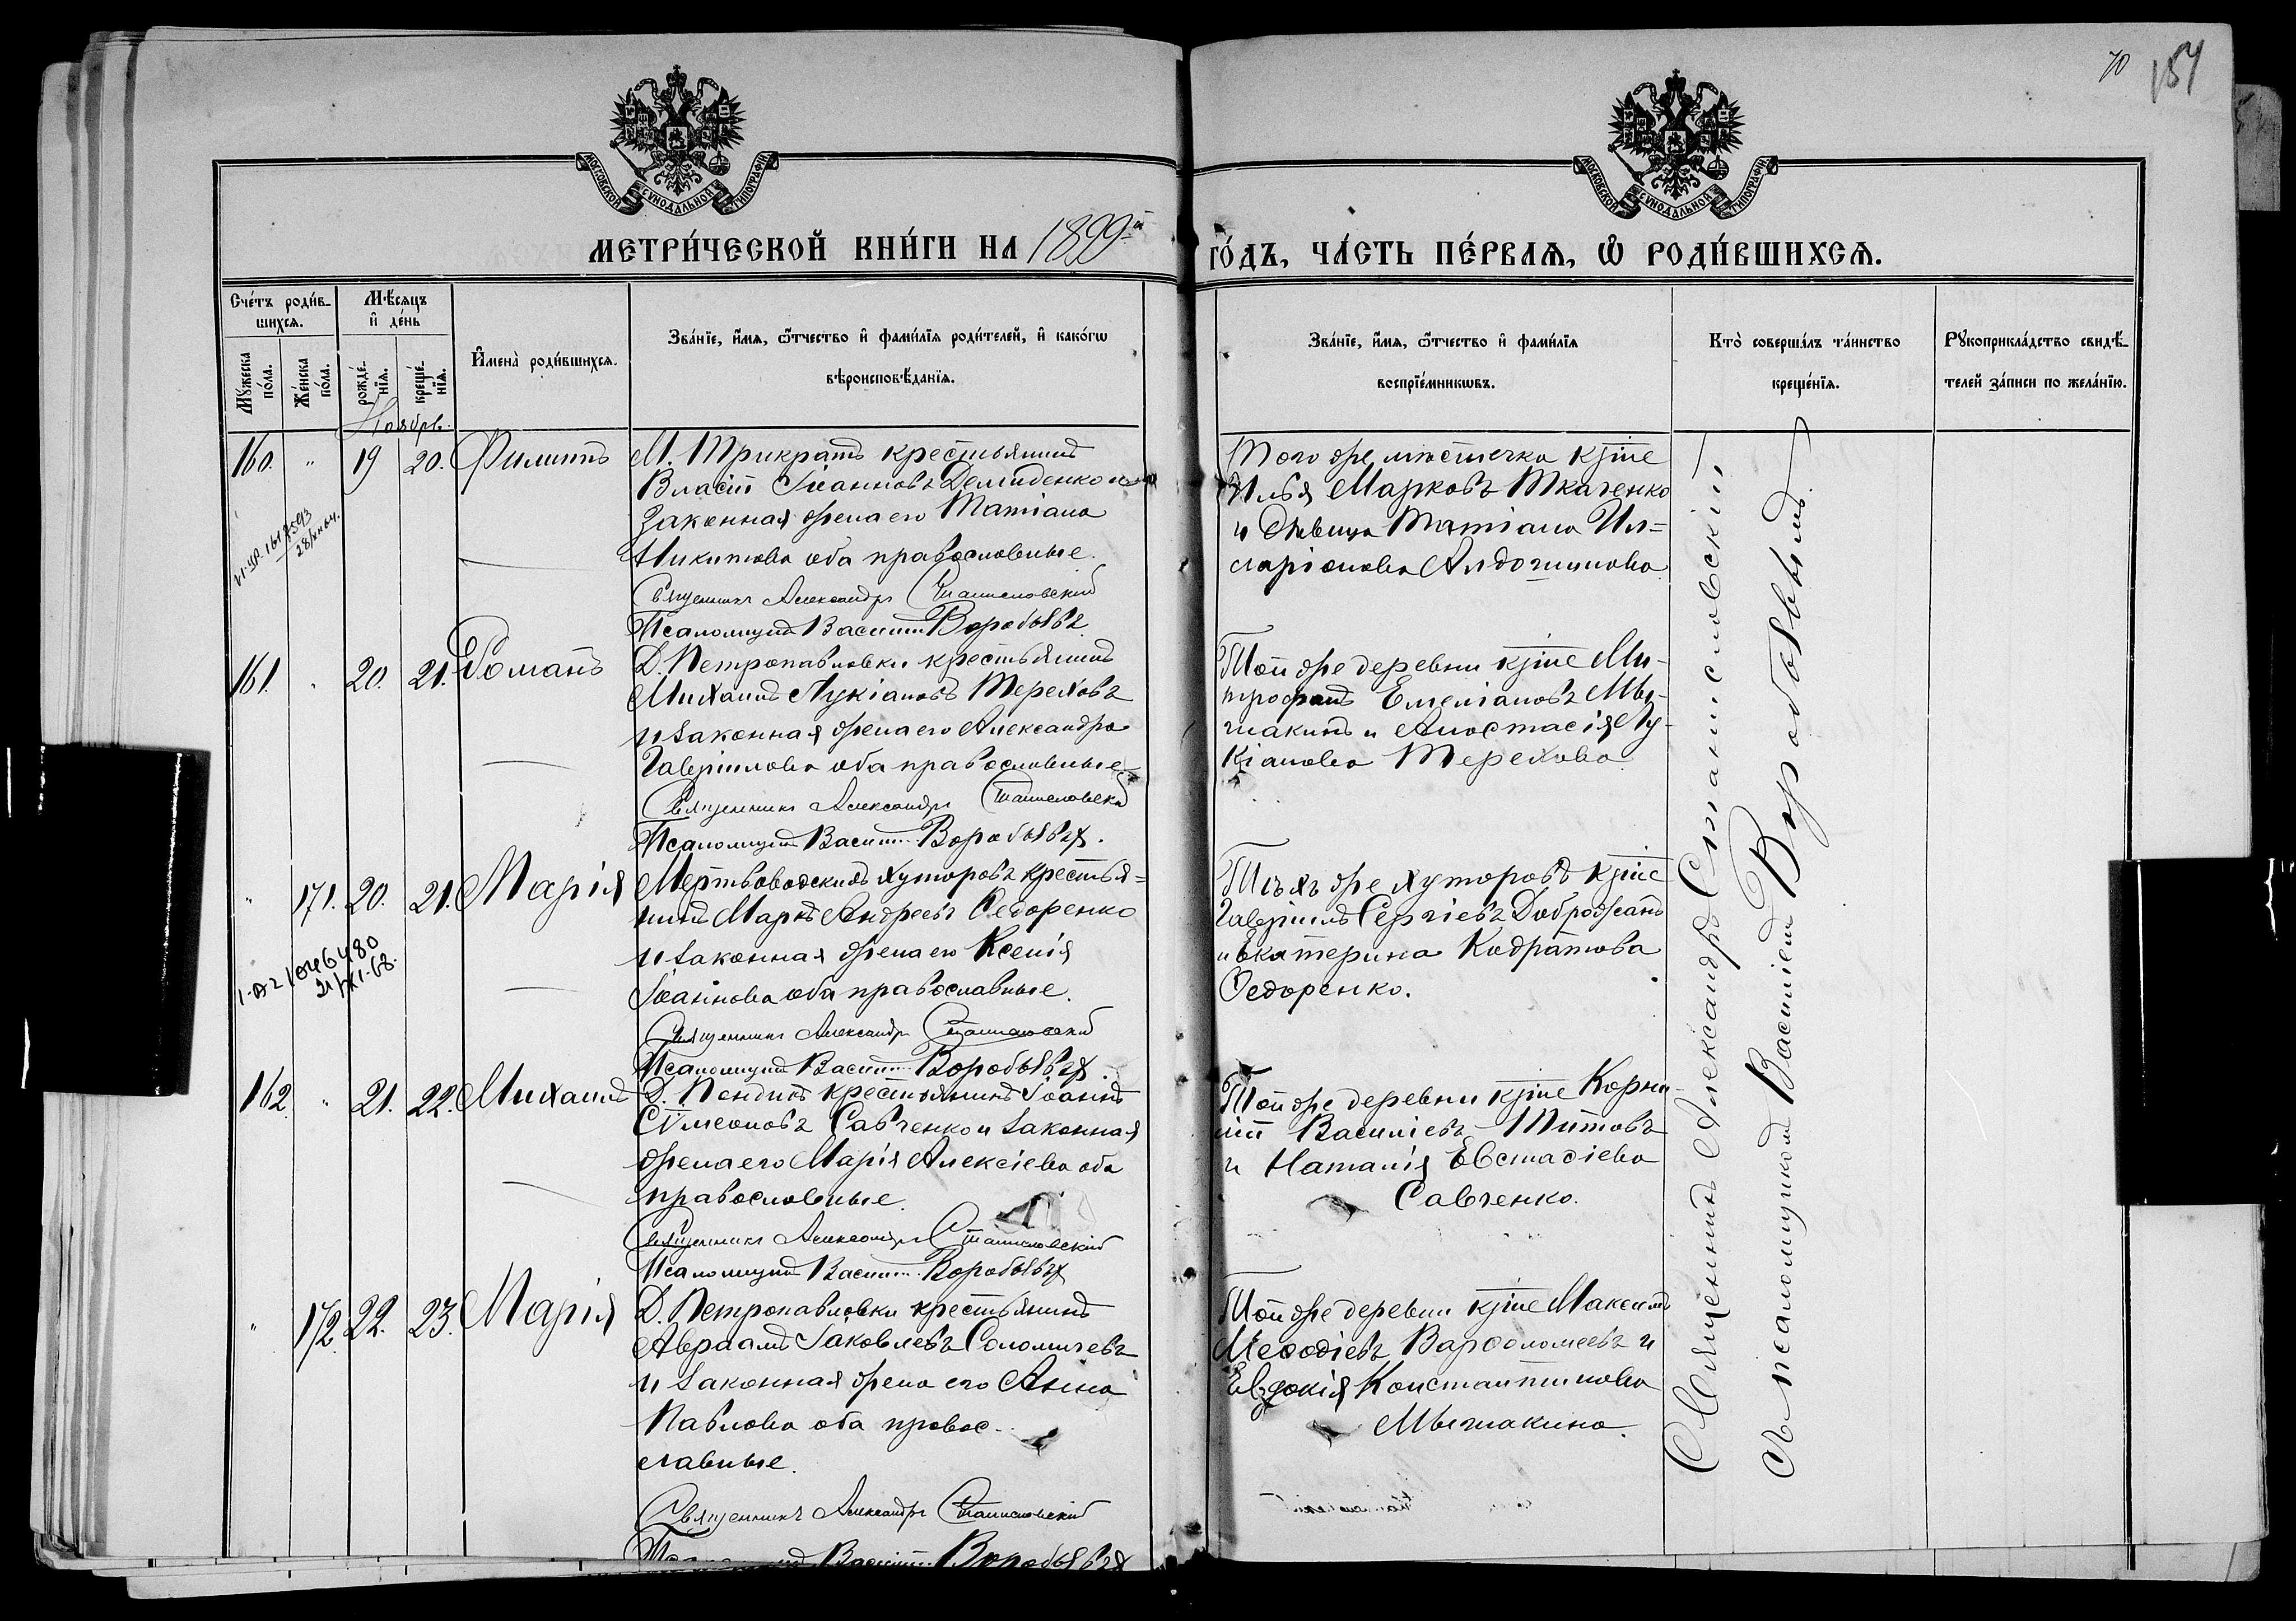 70 154
МОСКОВСКОЙ СУНОДАЛЬНОЙ ТИПОГРАФІИ
МОСКОВСКОЙ СУНОДАЛЬНОЙ ТИПОГРАФІИ
МЕТРИ́ЧЕСКОЙ КНИ́ГИ НА 1899й го́дъ, ЧА́СТЬ ПЕ́РВАѦ, Ѡ҆ РОДИ́ВШИХСѦ.
Сче́тъ роди́в-
шихсѧ.
Мꙋ́жеска по́ла.
Же́нска по́ла.
Мѣ́сѧцъ
и҆ де́нь
рожде́-
нїѧ.
креще́-
нїѧ.
И҆мена̀ роди́вшихсѧ.
Зва́нїе, и҆́мѧ, ѻ҆́тчество и҆ фами́лїѧ роди́телей, и҆ како́гѡ
вѣроисповѣ́данїѧ.
Зва́нїе, и҆́мѧ, ѻ҆́тчество и҆ фами́лїѧ
воспрїе́мникѡвъ.
Кто̀ соверша́лъ та́инство
креще́нїѧ.
Рꙋкоприкла́дство свидѣ́-
телей за́писи по жела́нїю.
Ноябрь.
160. " 19 20. Филиппъ
М. Трикратъ крестьянинъ
Власій Іоанновъ Демиденко и
Законная жена его Татіана
Никитова оба православные.
Священникъ Александръ Станиславскій
Псаломщикъ Василій Воробьевъ
Того же мѣстечка кр̅не
Илья Марковъ Ткаченко
и дѣвица Татіана Ил=
ларіонова Алдошинова
28/
161. " 20. 21. Романъ
Д. Петропавловки крестьянинъ
Михаилъ Лукіановъ Тереховъ
и законная жена его Александра
Гавріилова оба православные
Священникъ Александръ Станиславскій
Псаломщикъ Василій Воробьевъ.
Той же деревни кр̅не Ми-
трофанъ Емеліановъ Мы-
шакинъ и Анастасія Лу-
кіанова Терехова
" 171. 20. 21. Марія
Мертвоводскихъ хуторовъ крестья=
нинъ Маркъ Андреевъ Ѳедоренко
и законная жена его Ксенія
Іоаннова оба православные.
Священникъ Александръ Станиславскій
Псаломщикъ Василій Воробьевъ.
Тѣхъ же хуторовъ кр̅не
Гавріилъ Сергіевъ Доброжанъ
и Екатерина Кодратова
Ѳедоренко.
1046480
21/XI-68.
162. " 21. 22. Михаилъ
Д. Пендикъ крестьянинъ Іоаннъ
Сѵмеоновъ Савченко и законная
жена его Марія Алексіева оба
православные.
Священникъ Александръ Станиславскій
Псаломщикъ Василій Воробьевъ
Той же деревни кр̅не Корни-
лій Василіевъ Титовъ
и Наталія Евстаѳіева
Савченко.
" 172. 22. 23. Марія
Д. Петропавловки крестьянинъ
Авраамъ Іаковлевъ Соломичевъ
и законная жена его Анна
Павлова оба правос-
лавные.
Священникъ Александръ Станиславскій
Василій Воробьевъ
Той же деревни кр̅не Максимъ
Меѳодіевъ Варѳоломеевъ и
Евдокія Константинова
Мышакина.
Священникъ Александръ Станиславскій
съ псаломщикомъ Василіемъ Воробьевымъ.